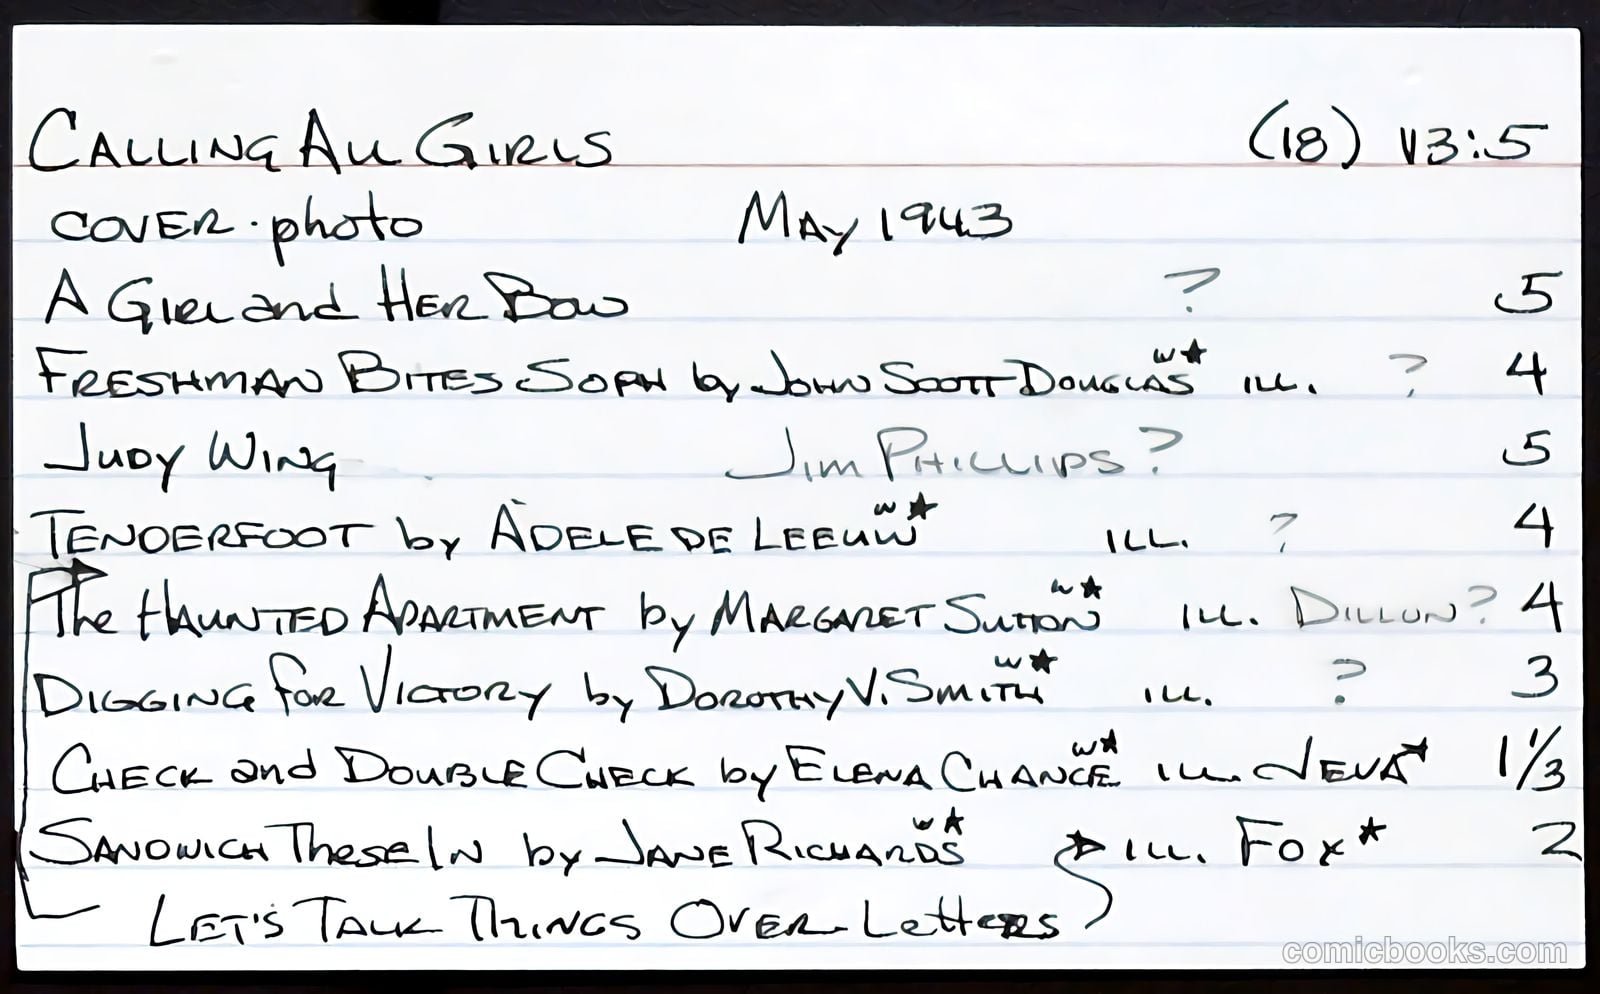 CALLING ALL GIRLS (18) V3:5
COVER · photo MAY 1943
A GIRL and HER BOW ? 5
FRESHMAN BITES SOPH by JOHN SCOTT DOUGLAS w★ ILL. ? 4
JUDY WING JIM PHILLIPS? 5
TENDERFOOT by ADELE DE LEEUW w★ ILL. ? 4
The HAUNTED APARTMENT by MARGARET SUTTON w★ ILL. DILLON? 4
DIGGING for VICTORY by DOROTHY V. SMITH w★ ILL. ? 3
CHECK and DOUBLE CHECK by ELENA CHANCE w★ ILL. NEVA★ 1 1/3
SANDWICH These IN by JANE RICHARDS w★ ILL. FOX★ 2
LET'S TALK THINGS OVER - Letters
comicbooks.com